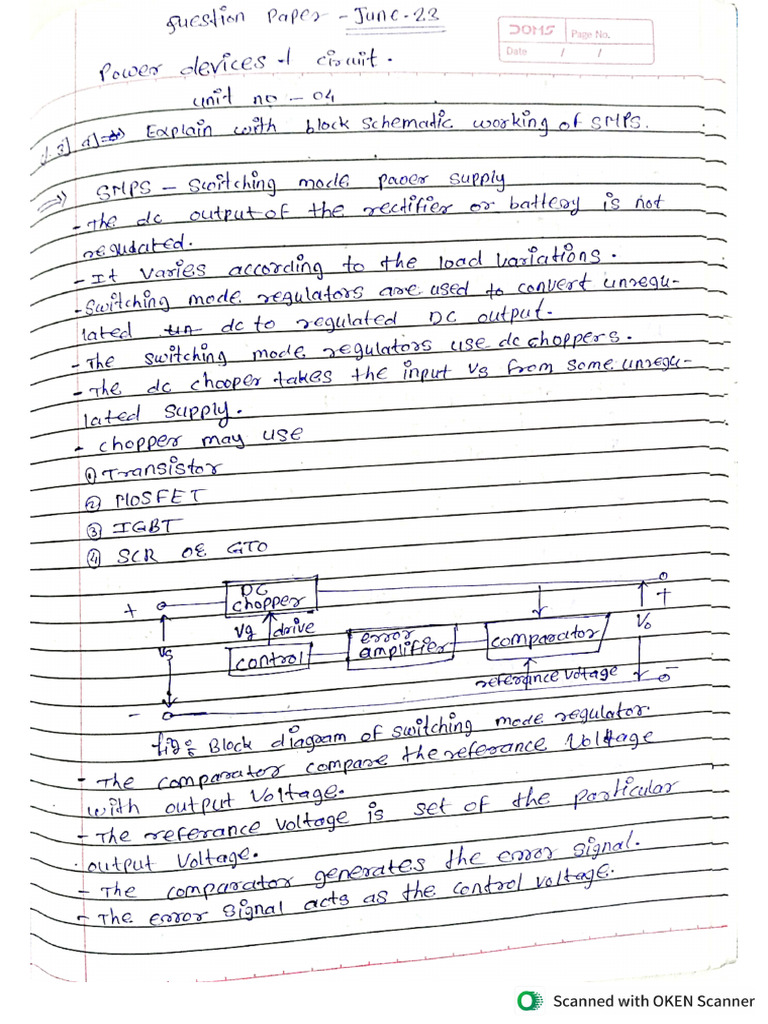 Question Paper - June-23
DOMS
Page No.
Date / /
Power devices & circuit.
unit no - 04
a) Explain with block schematic working of SMPS.
=> SMPS - Switching mode paoer supply
- The dc output of the rectifier or battery is not
regudated.
- It varies according to the load variations.
- Switching mode regulators are used to convert unregu-
lated dc to regulated DC output.
- The switching mode regulators use dc choppers.
- The dc chooper takes the input Vs from some unregu-
lated supply.
- chopper may use
① Transistor
② MOSFET
③ IGBT
④ SCR OE GTO
DC
chopper
+
+
Vg drive
Vs
Vo
control
error
amplifier
comparator
referance voltage
-
-
fig: Block diagram of switching mode regulator.
- The comparator compare the referance Voltage
with output Voltage.
- The referance voltage is set of the particular
output Voltage.
- The comparator generates the error signal.
- The error signal acts as the control voltage.
Scanned with OKEN Scanner